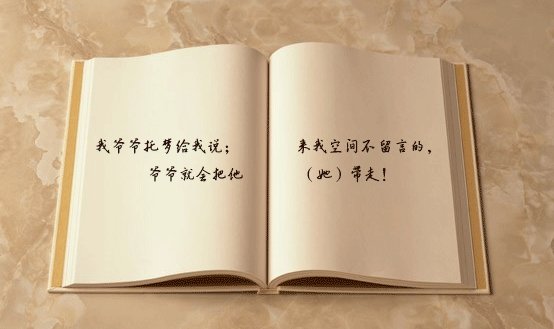 我爷爷托梦给我说；来我空间不留言的，
爷爷就会把他（她）带走！